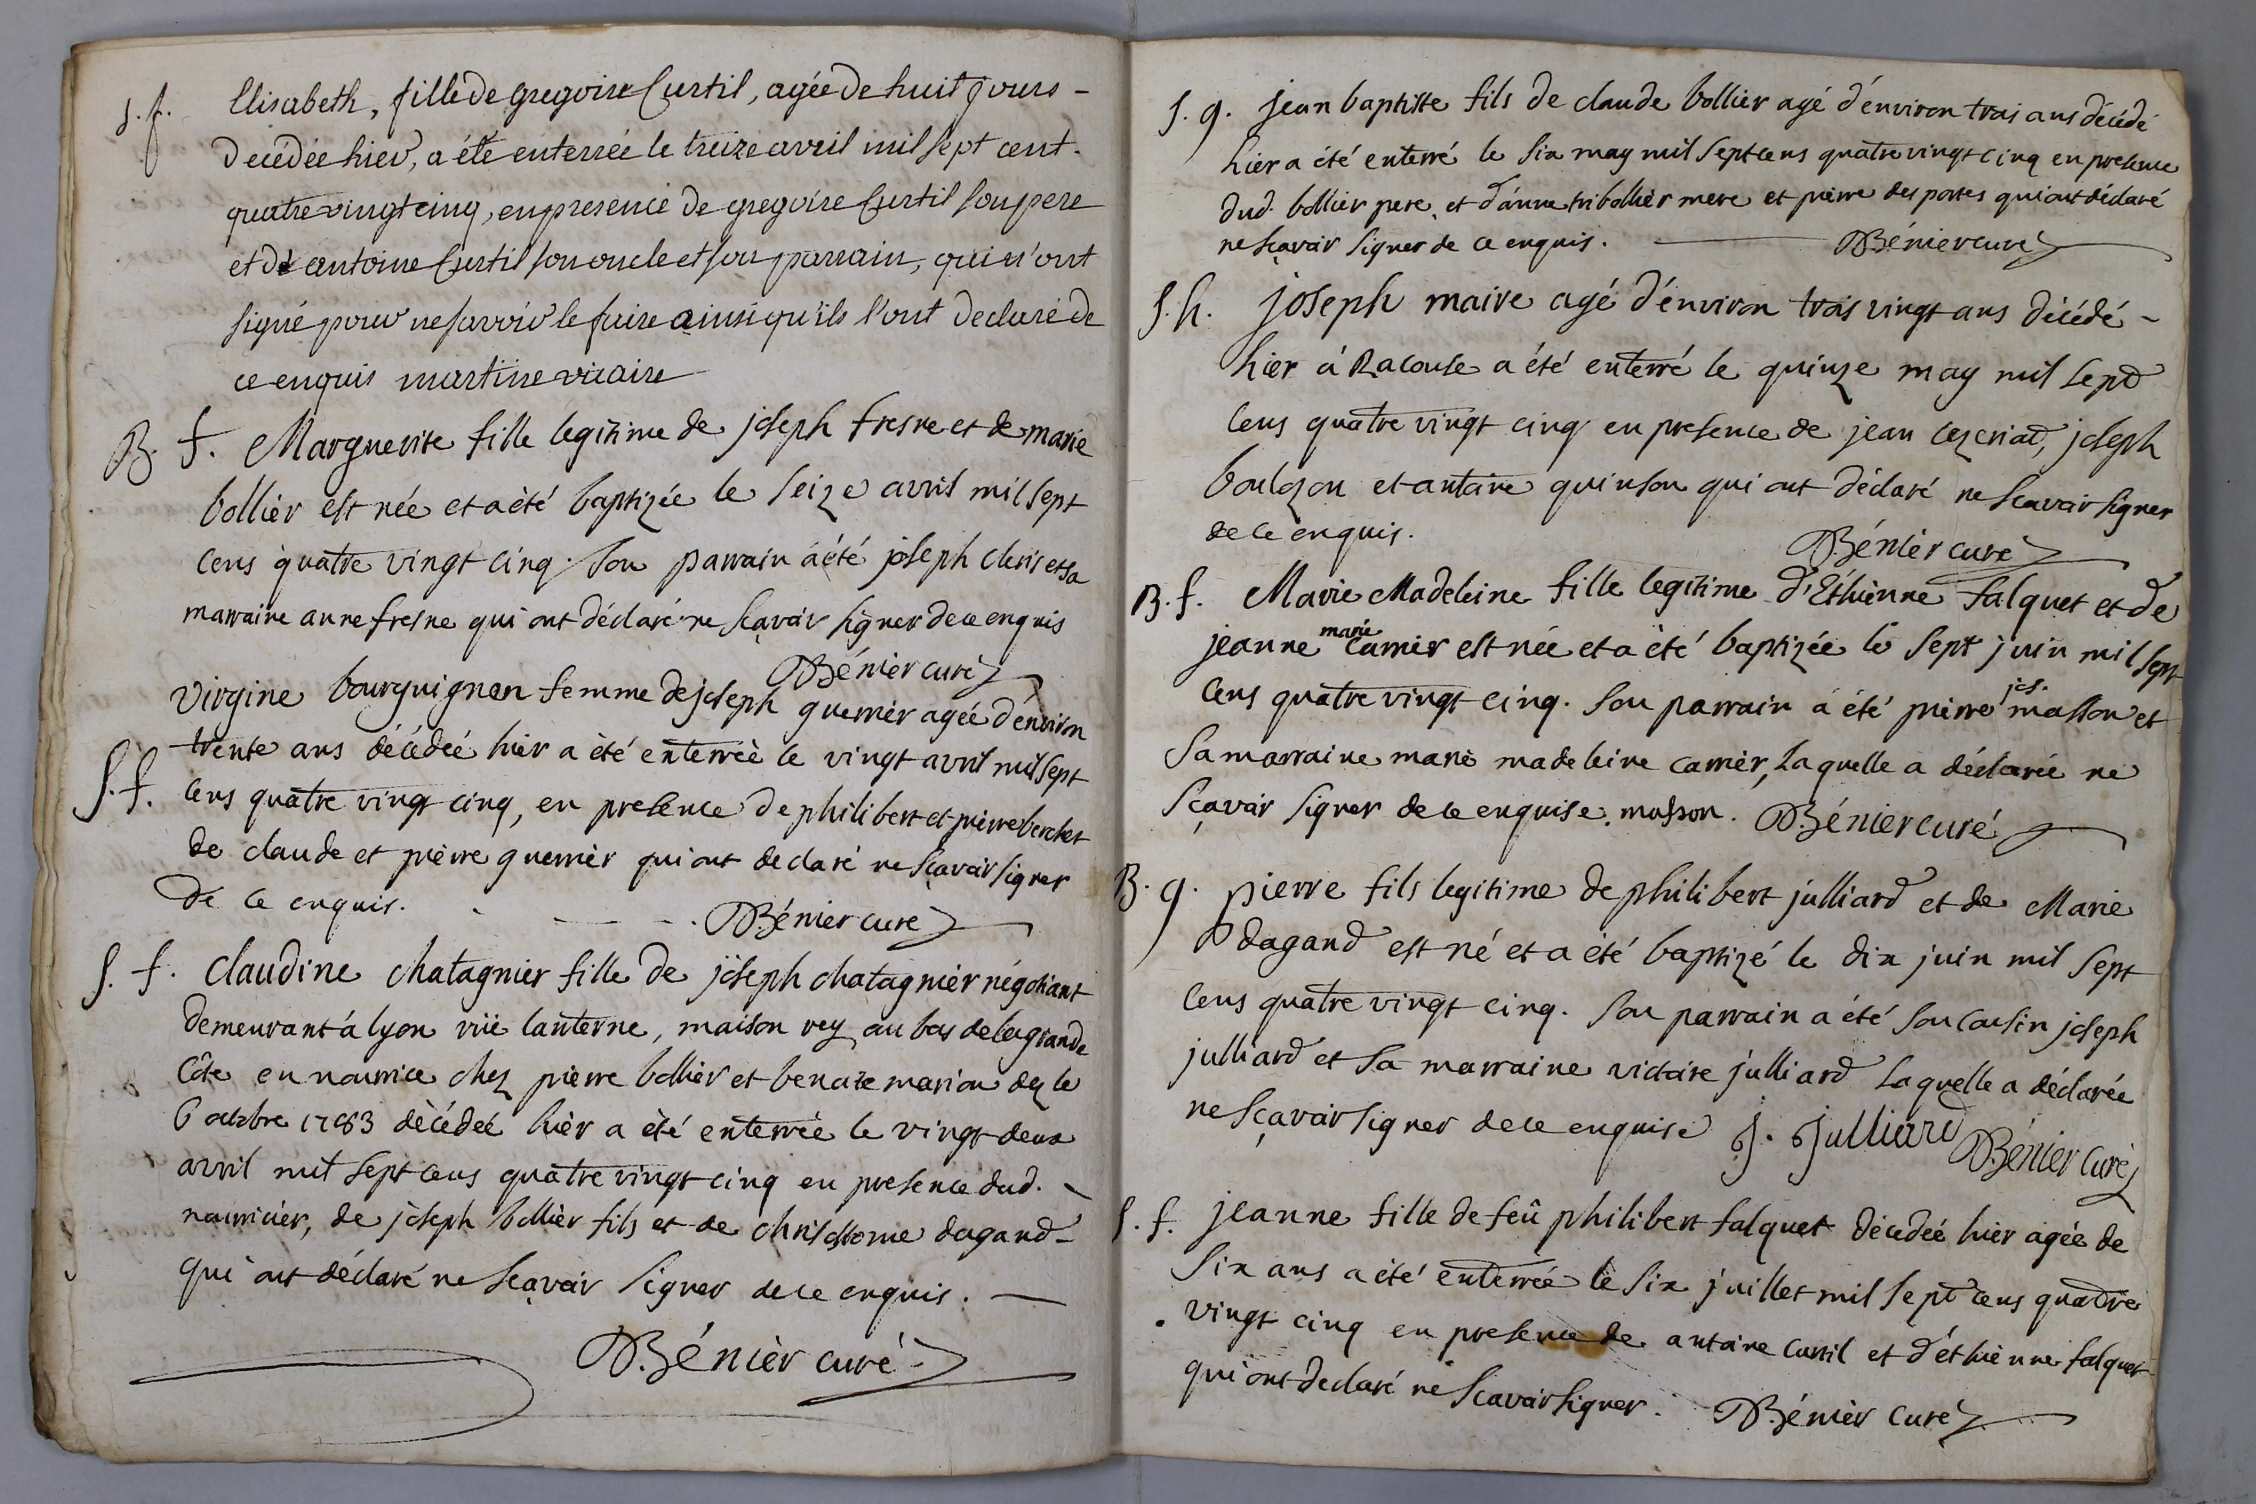 S. f. Elisabeth, fille de gregoire Curtil, agée de huit jours -
decédée hier, a été enterrée le treize avril mil sept cent
quatre vingt cinq, en presence de gregoire Curtil son pere
et de antoine Curtil son oncle et son parrain, qui n'ont
signé pour ne savoir le faire ainsi qu'ils l'ont declaré de
ce enquis martine vicaire
B. f. Marguerite fille legitime de joseph fresne et de marie
bollièr est née et a été baptizée le seize avril mil sept
cens quatre vingt cinq. son parrain a été joseph cleris et sa
marraine anne fresne qui ont déclaré ne sçavoir signer de ce enquis
Bénièr curé
virgine bourguignon femme de joseph guerrièr agée d'énviron
S. f. trente ans décédeé hier a été enterreé le vingt avril mil sept
cens quatre vingt cinq, en presence de philibert et pierre berchet
de claude et pièrre guerrièr qui ont declaré ne sçavoir signer
de ce enquis. Bénier curé
S. f. Claudine chatagnièr fille de joseph chatagnièr négotiant
demeurant á lyon rüe lanterne, maison rey au bas de la grande
Côte en nourrice chez pierre bollièr et benoite marion dez le
6 octobre 1783 décédeé hièr a été enterreé le vingt-deux
avril mil sept cens quatre vingt cinq en presence dud.
nourricier, de joseph bollièr fils et de chrisostome dagand -
qui ont déclaré ne sçavoir signer de ce enquis.
Bénièr curé
S. g. jean baptiste fils de claude bollièr agé d'énviron trois ans décédé
hier a été enterré le six may mil sept cens quatre vingt cinq en presence
dud. bollièr pere et d'anne tribollièr mere et pièrre des portes qui ont déclaré
ne sçavoir signer de ce enquis. Bénier curé
S. h. joseph maire agé d'énviron trois vingt ans décédé -
hièr á Racouse a été enterré le quinze may mil sept
cens quatre vingt cinq en presence de jean cezeriat, joseph
boulozon et antoine quinson qui ont déclaré ne sçavoir signer
de ce enquis. Bénièr curé
B. f. Marie Madeleine fille legitime d'Ethienne falquet et de
jeanne marie carrièr est née et a été baptizée le sept juin mil sept
cens quatre vingt cinq. son parrain a été pièrre jos. masson et
sa marraine marie madeleine carrièr, laquelle a déclarée ne
sçavoir signer de ce enquise. masson. Bénier curé
B. g. pierre fils legitime de philibert julliard et de Marie
dagand est né et a été baptizé le dix juin mil sept
cens quatre vingt cinq. son parrain a été son cousin joseph
julliard et sa marraine victoire julliard laquelle a déclarée
ne sçavoir signer de ce enquise J. Julliard Bénier Curé
S. f. jeanne fille de feû philibert falquet décedeé hièr agée de
six ans a été enterreé le six juillet mil sept cens quatre
vingt cinq en presence de antoine curtil et d'éthiènne falquet
qui ont declaré ne sçavoir signer. Bénièr curé